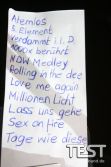 Atemlos
5. Element
Verdammt i.l.D.
1000x berührt
NOW Medley
Rolling in the dee
Love me again
Millionen Licht
Lass uns gehe
Sex on fire
Tage wie diese
TEST